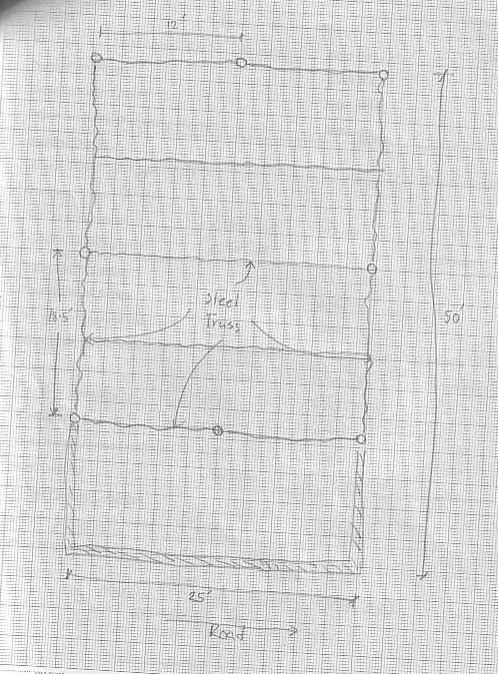 12'
Steel
Truss
18.5'
50'
25'
Road